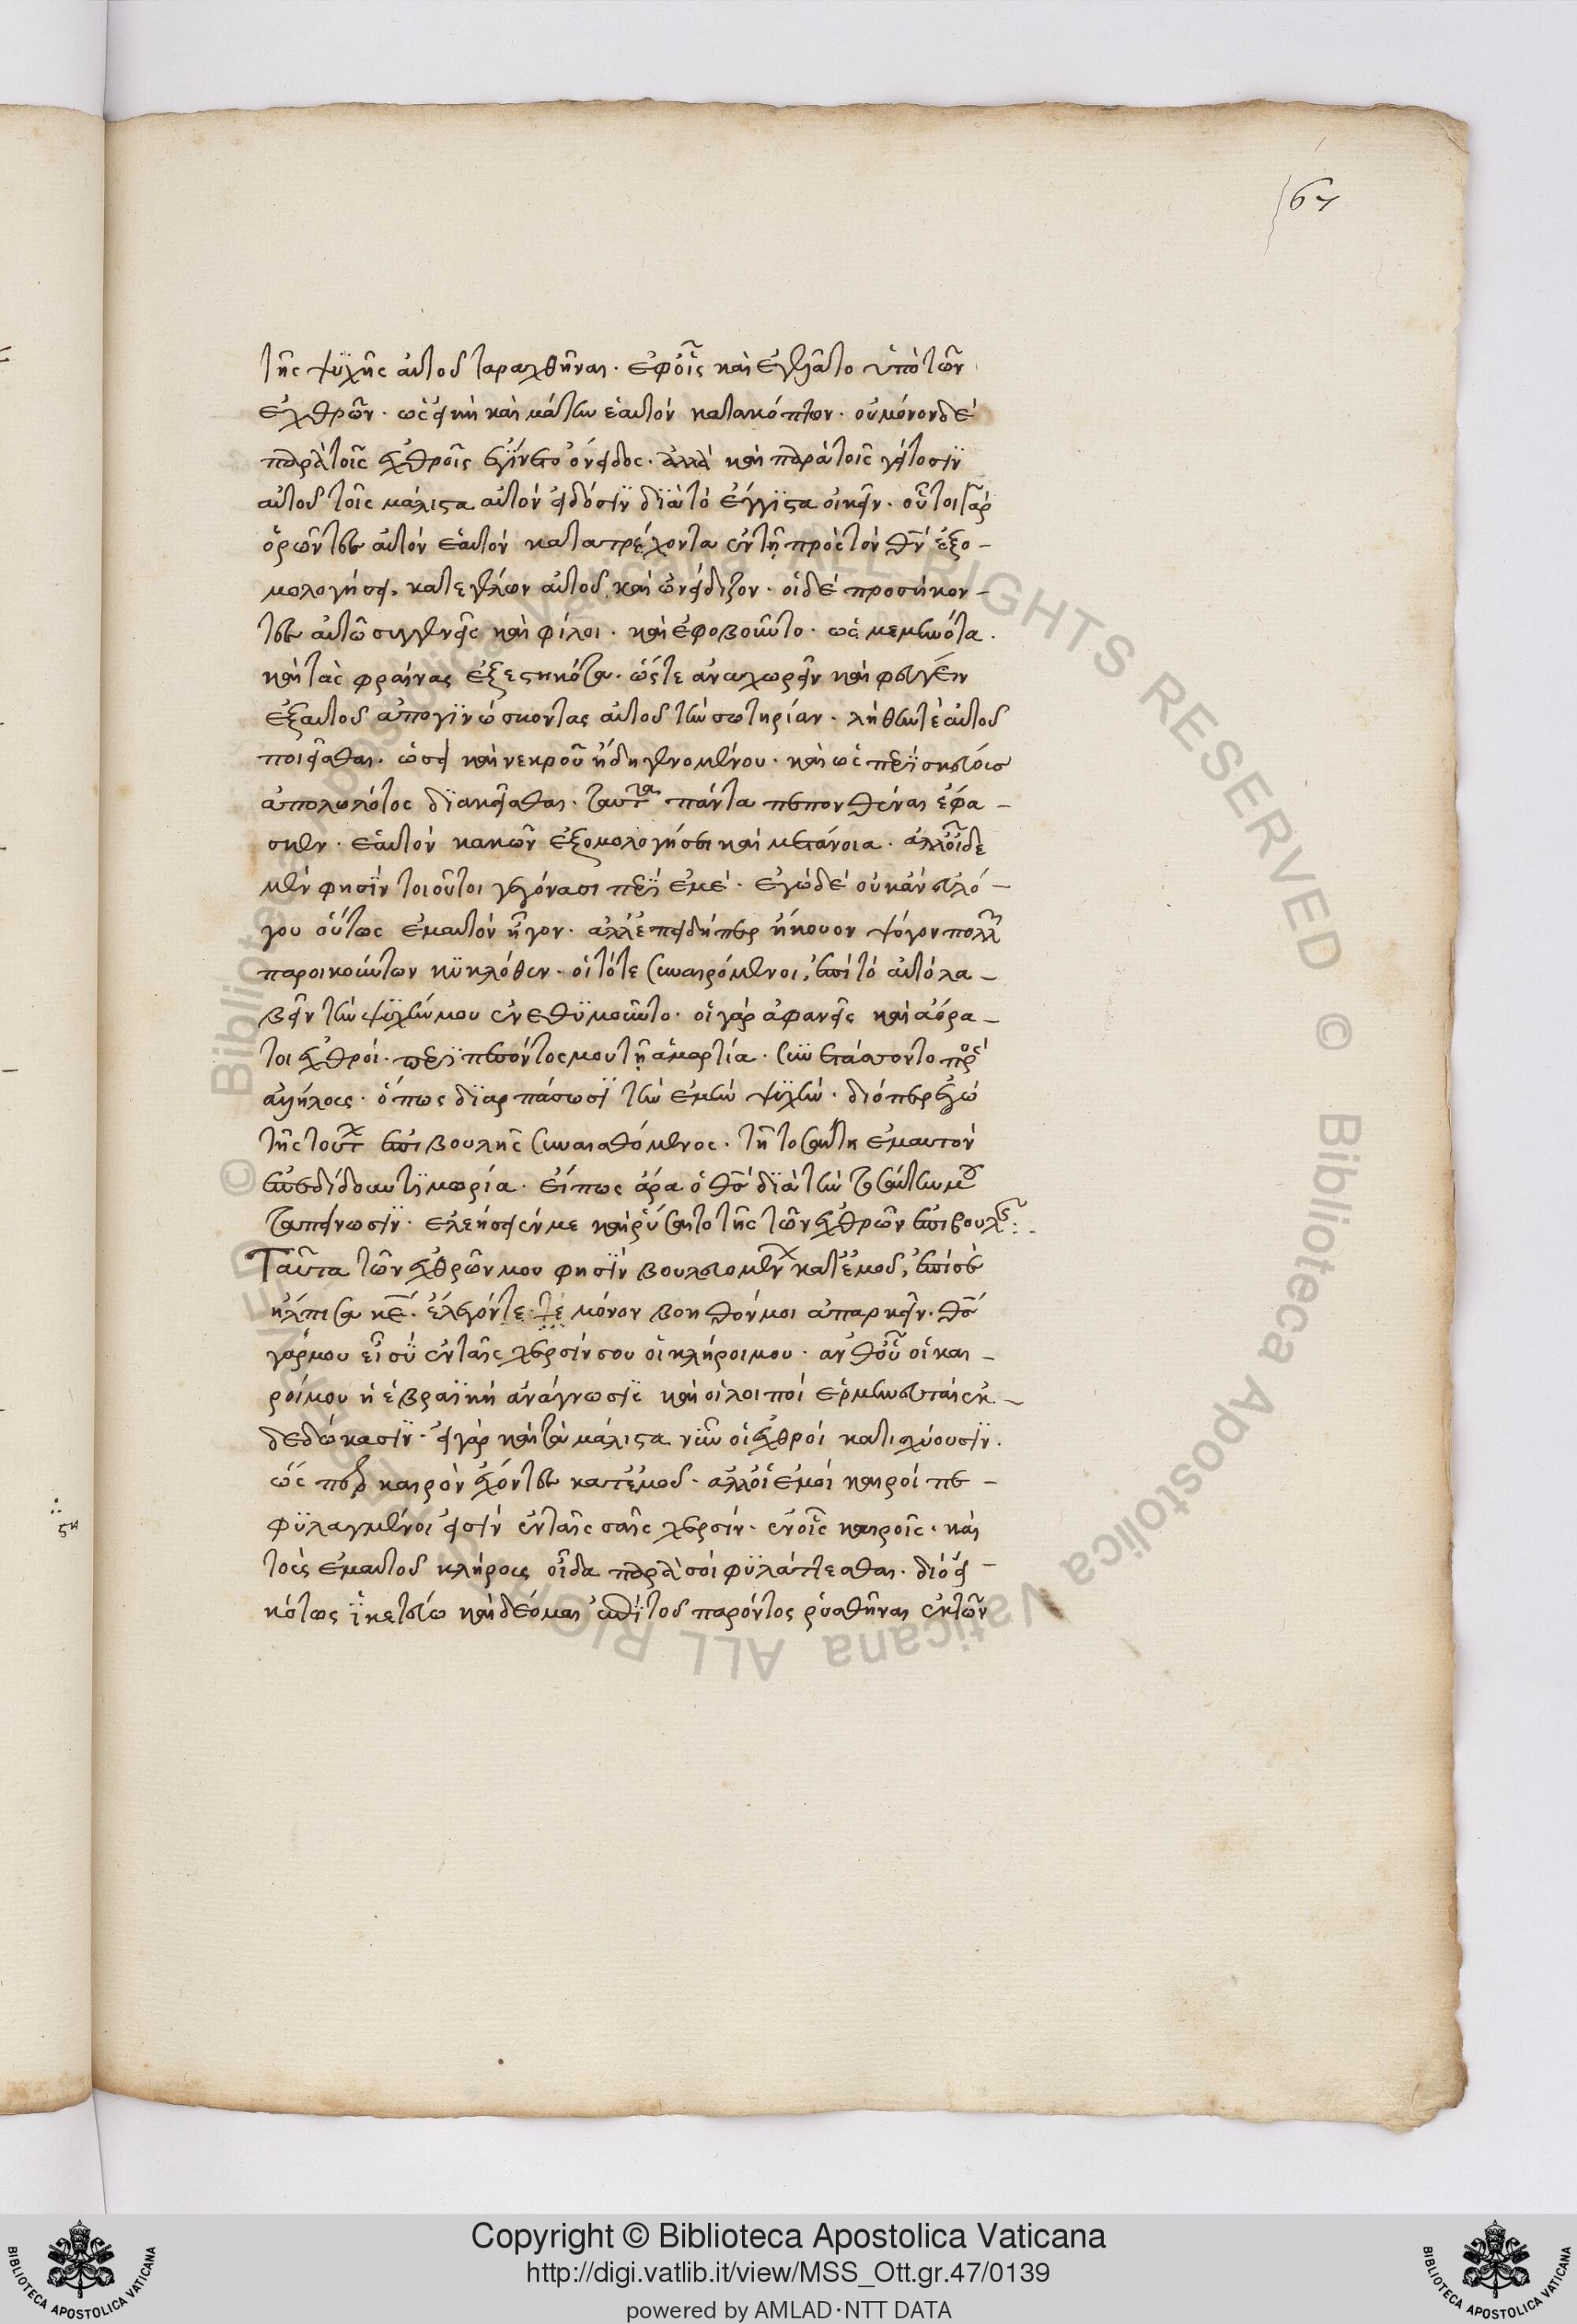 67
τῆς ψϋχῆς αὐτοῦ ταραχθῆναι· ἐφ' οἷς καὶ ἐγελᾶτο ὑπὸ τῶν
ἐχθρῶν· ὡς εἰκῆ καὶ μάτην ἑαυτὸν κατακόπτων· οὐ μόνον δὲ
παρὰ τοῖς ἐχθροῖς ἐγίνετο ὄνειδος· ἀλλὰ καὶ παρὰ τοῖς γείτοσϊν
αὐτοῦ τοῖς μάλιστα αὐτὸν εἰδόσϊν διὰ τὸ ἔγγϊστα οἰκεῖν· οὗτοι γὰρ
ὁρῶντες αὐτὸν ἑαυτὸν κατατρέχοντα ἐν τῇ πρὸς τὸν θν ἐξο-
μολογήσει, κατεγέλων αὐτοῦ καὶ ὠνείδιζον· οἱ δὲ προσήκον-
τες αὐτῶ συγγενεῖς καὶ φίλοι· καὶ ἐφοβοῦντο· ὡς μεμηνότα·
καὶ τὰς φραίνας ἐξεστηκότα· ὥστε ἀναχωρεῖν καὶ φεύγειν
ἐξ αὐτοῦ ἀπογϊνώσκοντας αὐτοῦ τὴν σωτηρίαν· λήθην τὲ αὐτοῦ
ποιεῖσθαι· ὡσεὶ καὶ νεκροῦ ἤδη γενομένου· καὶ ὡς περὶ σκεύους
ἀπολωλότος δϊακεῖσθαι· ταῦτα πάντα πεπονθέναι ἔφα-
σκεν· ἑαυτὸν κακῶν ἐξομολογήσει καὶ μετάνοια· ἀλλ' οἵδε
μέν φησϊν τοιοῦτοι γεγόνασι περὶ ἐμέ· ἐγὼ δὲ οὐκ ἂν εὐλό-
γου οὕτως ἐμαυτὸν ἦγον· ἀλλ' ἐπειδήπερ ἤκουον ψόγον πολλῶν
παροικούντων κϋκλόθεν· οἳ τότε συναιρόμενοι, ἐπὶ τὸ αὐτὸ λα-
βεῖν τὴν ψϋχήν μου ἐνεθϋμοῦντο· οἱ γὰρ ἀφανεῖς καὶ ἀόρα-
τοι ἐχθροί· περιπεσόντος μου τῇ ἁμαρτία· συνετάσσοντο πρὸς
ἀλλήλους· ὅπως δϊαρπάσωσϊ τὴν ἐμὴν ψϋχήν· διόπερ ἐγὼ
τῆς τούτων ἐπιβουλῆς συναισθόμενος· τῇ τοσαύτη ἐμαυτὸν
ἐπεδίδουν τϊμωρία· εἴ πως ἄρα ὁ θς δϊὰ τὴν τοσαύτην μου
ταπείνωσϊν· ἐλεήσειέν με καὶ ῥύσαιτο τῆς τῶν ἐχθρῶν ἐπιβουλῆς:·
Ταῦτα τῶν ἐχθρῶν μου φησϊν βουλευομένων κατ' ἐμοῦ, ἐπὶ σὲ
ἤλπισα κε· ἑλεγόν τε τε μόνον βοηθόν μοι ἀπαρκεῖν· θς
γάρ μου εἶ σὺ ἐν ταῖς χερσίν σου οἱ κλῆροί μου· ἀνθ' οὗ οἱ και-
ροί μου ἡ ἑβραϊκὴ ἀνάγνωσϊς καὶ οἱ λοιποὶ ἑρμηνευταὶ ἐκ-
δεδώκασϊν· εἰ γὰρ καὶ τὰ μάλιστα νῦν οἱ ἐχθροὶ κατισχύουσϊν·
ὥσπερ καιρὸν ἔχοντες κατ' ἐμοῦ· ἀλλ' οἱ ἐμοὶ καιροὶ πε-
φϋλαγμένοι εἰσὶν ἐν ταῖς σαῖς χερσίν· ἐν οἷς καιροῖς· καὶ
τοὺς ἐμαυτοῦ κλήρους οἶδα παρὰ σοὶ φϋλάττεσθαι· διὸ εἰ-
κότως ἱκετεύω καὶ δέομαι ἐπὶ τοῦ παρόντος ῥυσθῆναι ἐκ τῶν
Copyright © Biblioteca Apostolica Vaticana
http://digi.vatlib.it/view/MSS_Ott.gr.47/0139
powered by AMLAD·NTT DATA